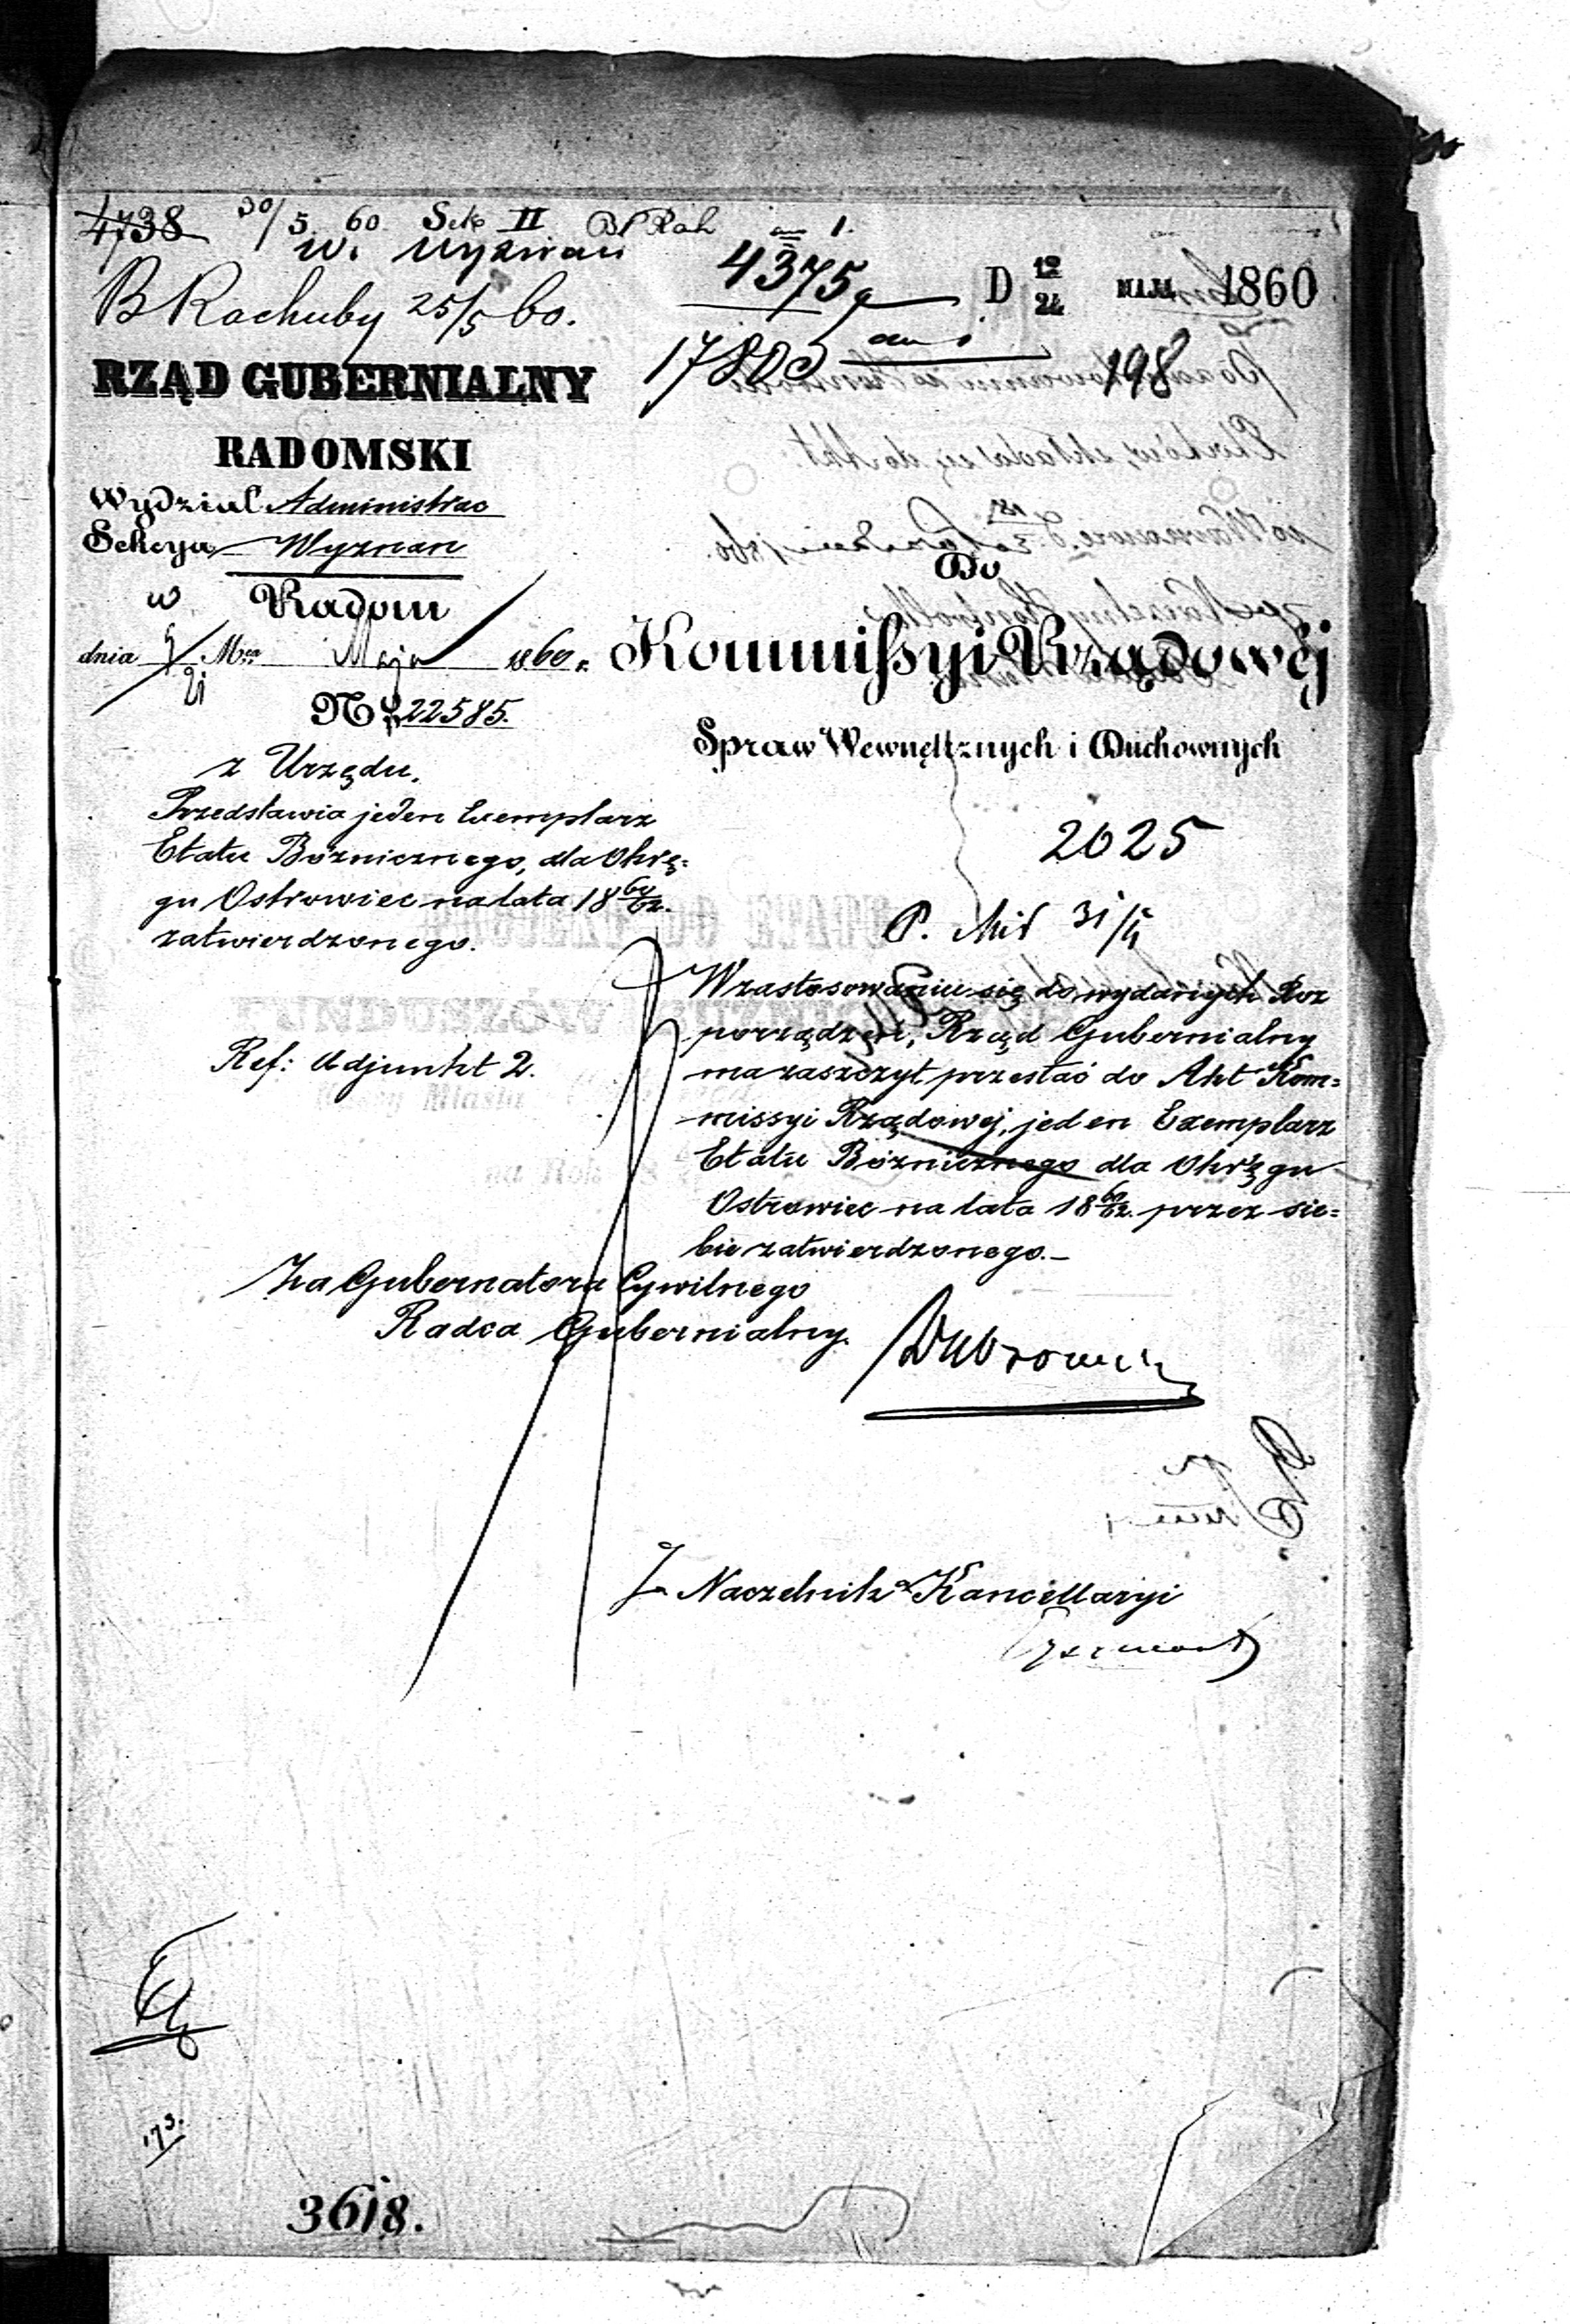 4738 30/5 60 Sek II
W. Wyznań
4375
D 12/24 MAJA 1860
B Rachuby 25/5 60.
17803
198
RZĄD GUBERNIALNY
RADOMSKI
Wydział Administrac
Sekcya Wyznan
w Radom
dnia 9/21 Mca Maja 1860 r.
No 22585.
z Urzędu.
Przedstawia jeden Exemplarz
Etatu Bóżnicznego, dla Okrę=
gu Ostrowiec na lata 18 60/62.
zatwierdzonego.
Ref: Adjunkt 2.
Do
Kommissyi Rządowéj
Spraw Wewnętrznych i Duchownych
2025
31/5
W zastosowaniu się do wydanych Roz
porządzeń, Rząd Gubernialny
ma zaszczyt przesłać do Akt Kom=
missyi Rządowej, jeden Exemplarz
Etatu Bóżnicznego dla Okręgu
Ostrowiec na lata 18 60/62. przez sie=
bie zatwierdzonego.—
Za Gubernatora Cywilnego
Radca Gubernialny.
Za Naczelnika Kancellaryi
173.
3618.